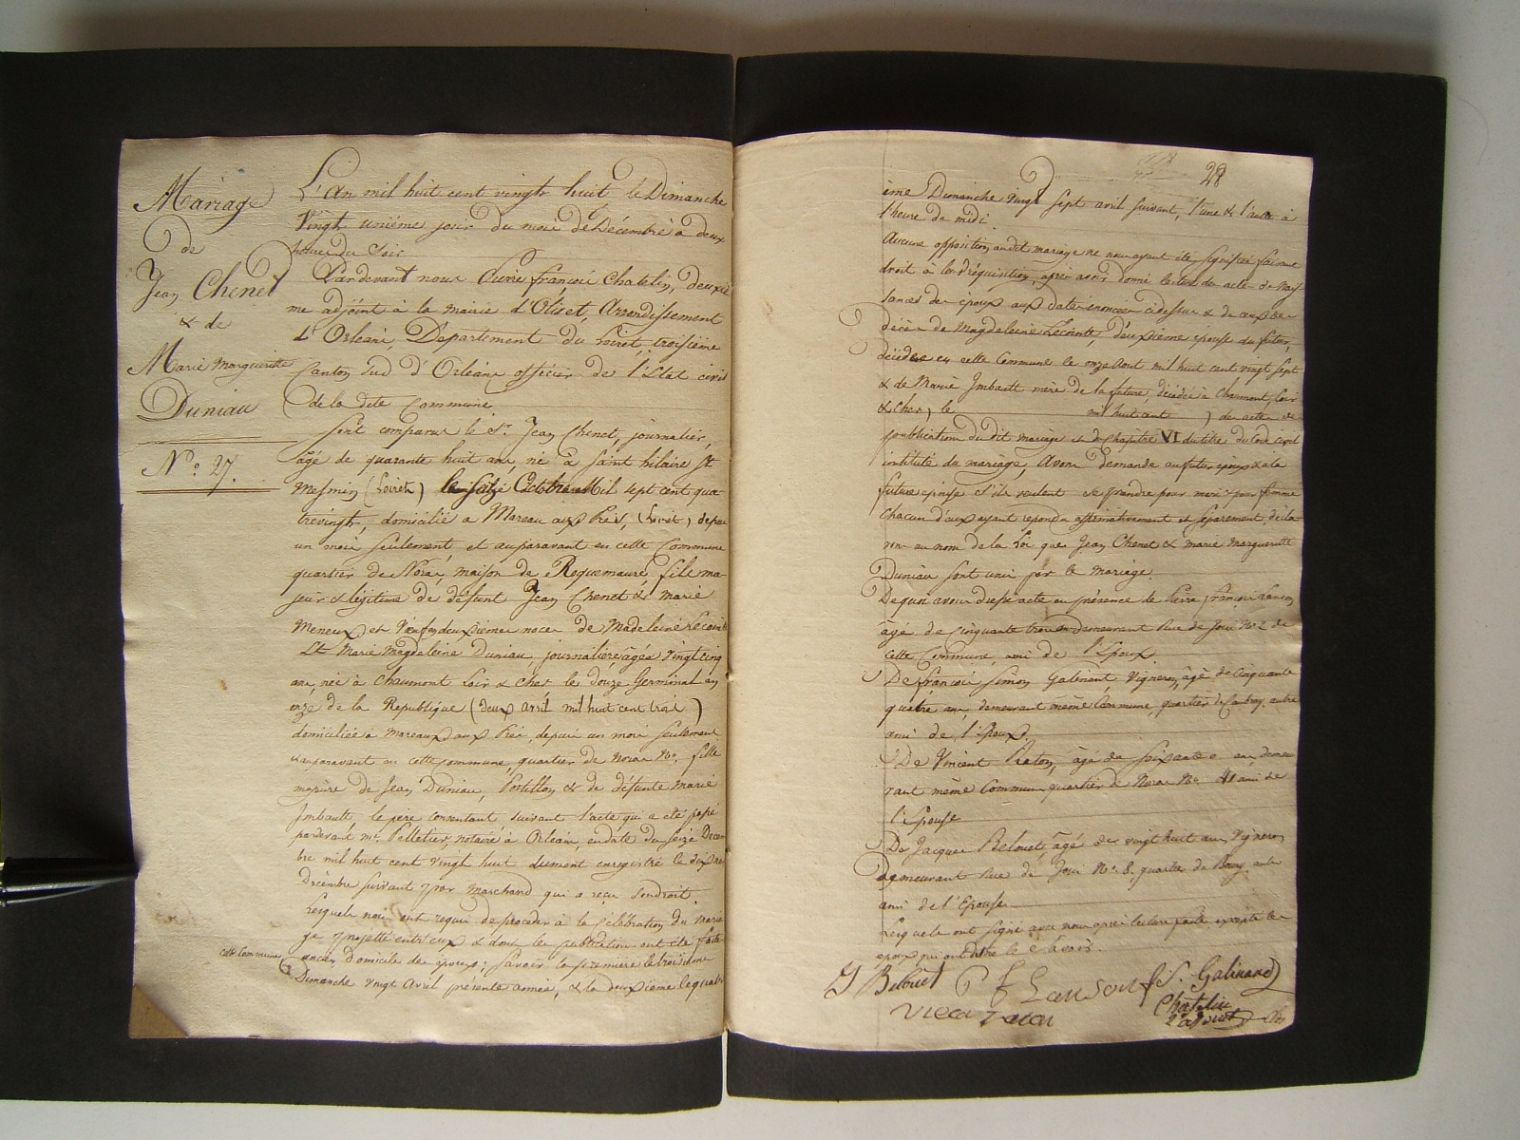 Mariage
de
Jean Chenet
& de
Marie Marguerite
Duniau
N.o 27.
L'An mil huit cent vingt huit le Dimanche
vingt unième jour du mois de Décembre à deux
heures du soir
Pardevant nous Pierre françois Chatelin, deuxiè
me adjoint à la mairie d'Olivet, Arrondissement
d'Orléans, Département du Loiret, troisième
Canton sud d'Orléans officier de l'Etat civil
de la dite Commune.
Sont comparus le Sr. Jean Chenet, journalier,
âgé de quarante huit ans, né à Saint hilaire St
Mesmin (Loiret) le seize Octobre Mil sept cent qua
trevingt, domicilié a Mareau aux Prés, (Loiret) depuis
un mois seulement, et auparavant en cette Commune
quartier de Noras, maison de Roquemaure, fils ma-
jeur & légitime de défunt Jean Chenet & Marie
Meneux, et veuf en deuxièmes noces de Madeleine Lecointe
Et Marie Magdeleine Duniau, journalière, âgée vingt cinq
ans, née à Chaumont Loir & Cher le douze Germinal an
onze de la République (deux avril mil huit cent trois)
domiciliée a Mareau aux Prés, depuis un mois seulement
& auparavant en cette commune, quartier de Noras No. fille
majeure de Jean Duniau, Postillon & de défunte Marie
Imbault, le père consentant suivant l'acte qui a été passé
pardevant me. Pelletier, notaire à Orléans, en date du seize Décem
bre mil huit cent vingt huit, dument enregistré le dix
Décembre suivant par Marchand qui a reçu son droit.
Lesquels nous ont requis de procéder à la célébration du maria
ge projetté entr'eux & dont les publications ont été faites
domicile des époux; savoir la première le troisième
cette Commune
Dimanche vingt Avril présente année, & la deuxième le quatri
28
ème Dimanche vingt sept avril suivant, l'une & l'autre à
l'heure de midi.
Aucune opposition audit mariage ne nous ayant été signifiée faisant
droit à leur réquisition, après avoir donné lecture des actes de nais
sances des époux aux dates énoncées cidessus & de ceux de
décès de Magdeleine Lecointe, deuxième épouse du futur,
décédée en cette Commune le onze Aout mil huit cent vingt sept
& de Marie Imbault mère de la future, décédée à Chaumont, Loir
& Cher, le mil huit cent ) des actes de
publication du dit mariage et du chapitre VI du titre du Code civil
intitulé du mariage, Avons demandé au futur époux & a la
future épouse s'ils veulent se prendre pour mari & pour femme
Chacun d'eux ayant répondu affirmativement et séparement, décla
rons au nom de la Loi que Jean Chenet & Marie Marguerite
Duniau sont unis par le mariage.
De quoi avons dressé acte en présence de Pierre françois Lanson
âgé de cinquante trois ans demeurant Rue de Joui No. 2 de
cette Commune, ami de l'Epoux.
De françois Simon Galinand, vigneron, âgé de cinquante
quatre ans, demeurant même Commune, quartier de Caubray, autre
ami de l'Epoux.
De Vincent Pieton, âgé de soixante ans, demeu
rant même Commune quartier de Noras No. 41 ami de
l'Epouse
De Jacques Belouet, âgé de vingt huit ans, Vigneron
demeurant Rue de Joui No. 8. quartier du Bourg autre
ami de l'Epouse
Lesquels ont signé avec nous après lecture faite excepté les
epoux qui ont dit ne le savoir.
J Belouet P f Lanson f. S. Galinand
Chatelin
adjoint